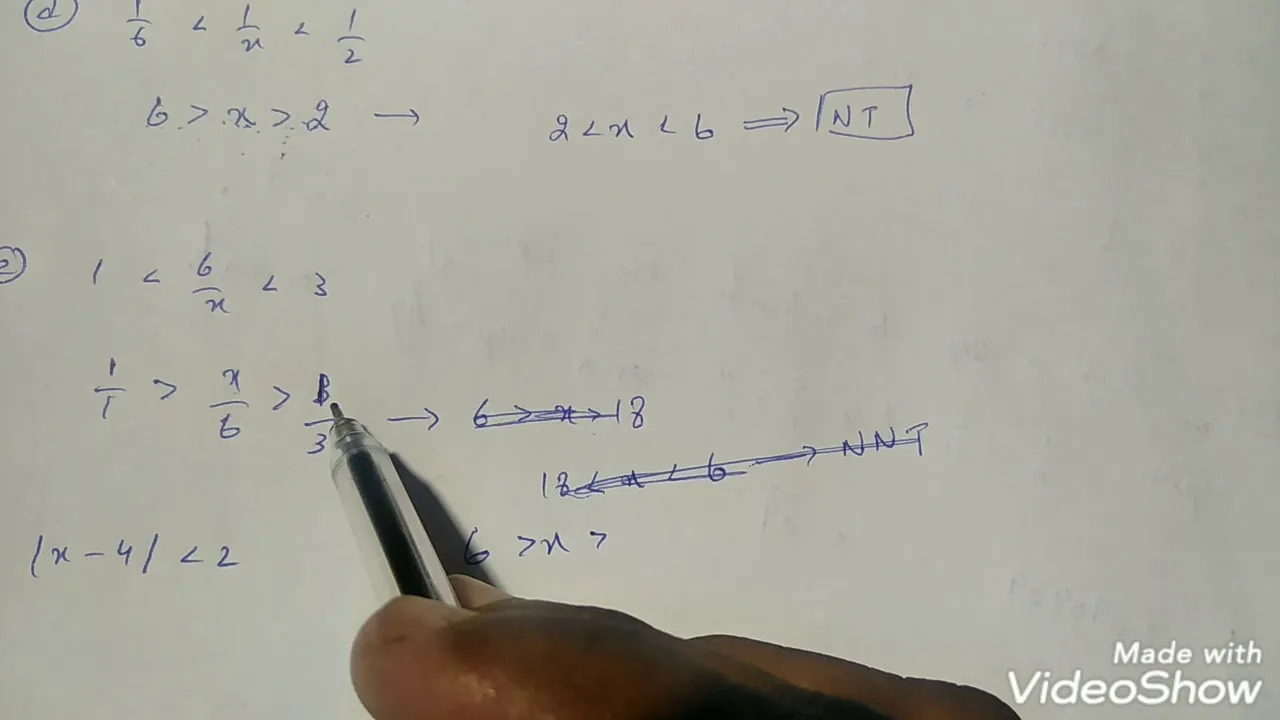 (d) 1/6 < 1/x < 1/2
6 > x > 2 → 2 < x < 6 ⟹ NT
(e) 1 < 6/x < 3
1/1 > x/6 > 1/3 → 6 > x > 18
18 < x < 6 → NNT
|x - 4| < 2 6 > x >
Made with
VideoShow